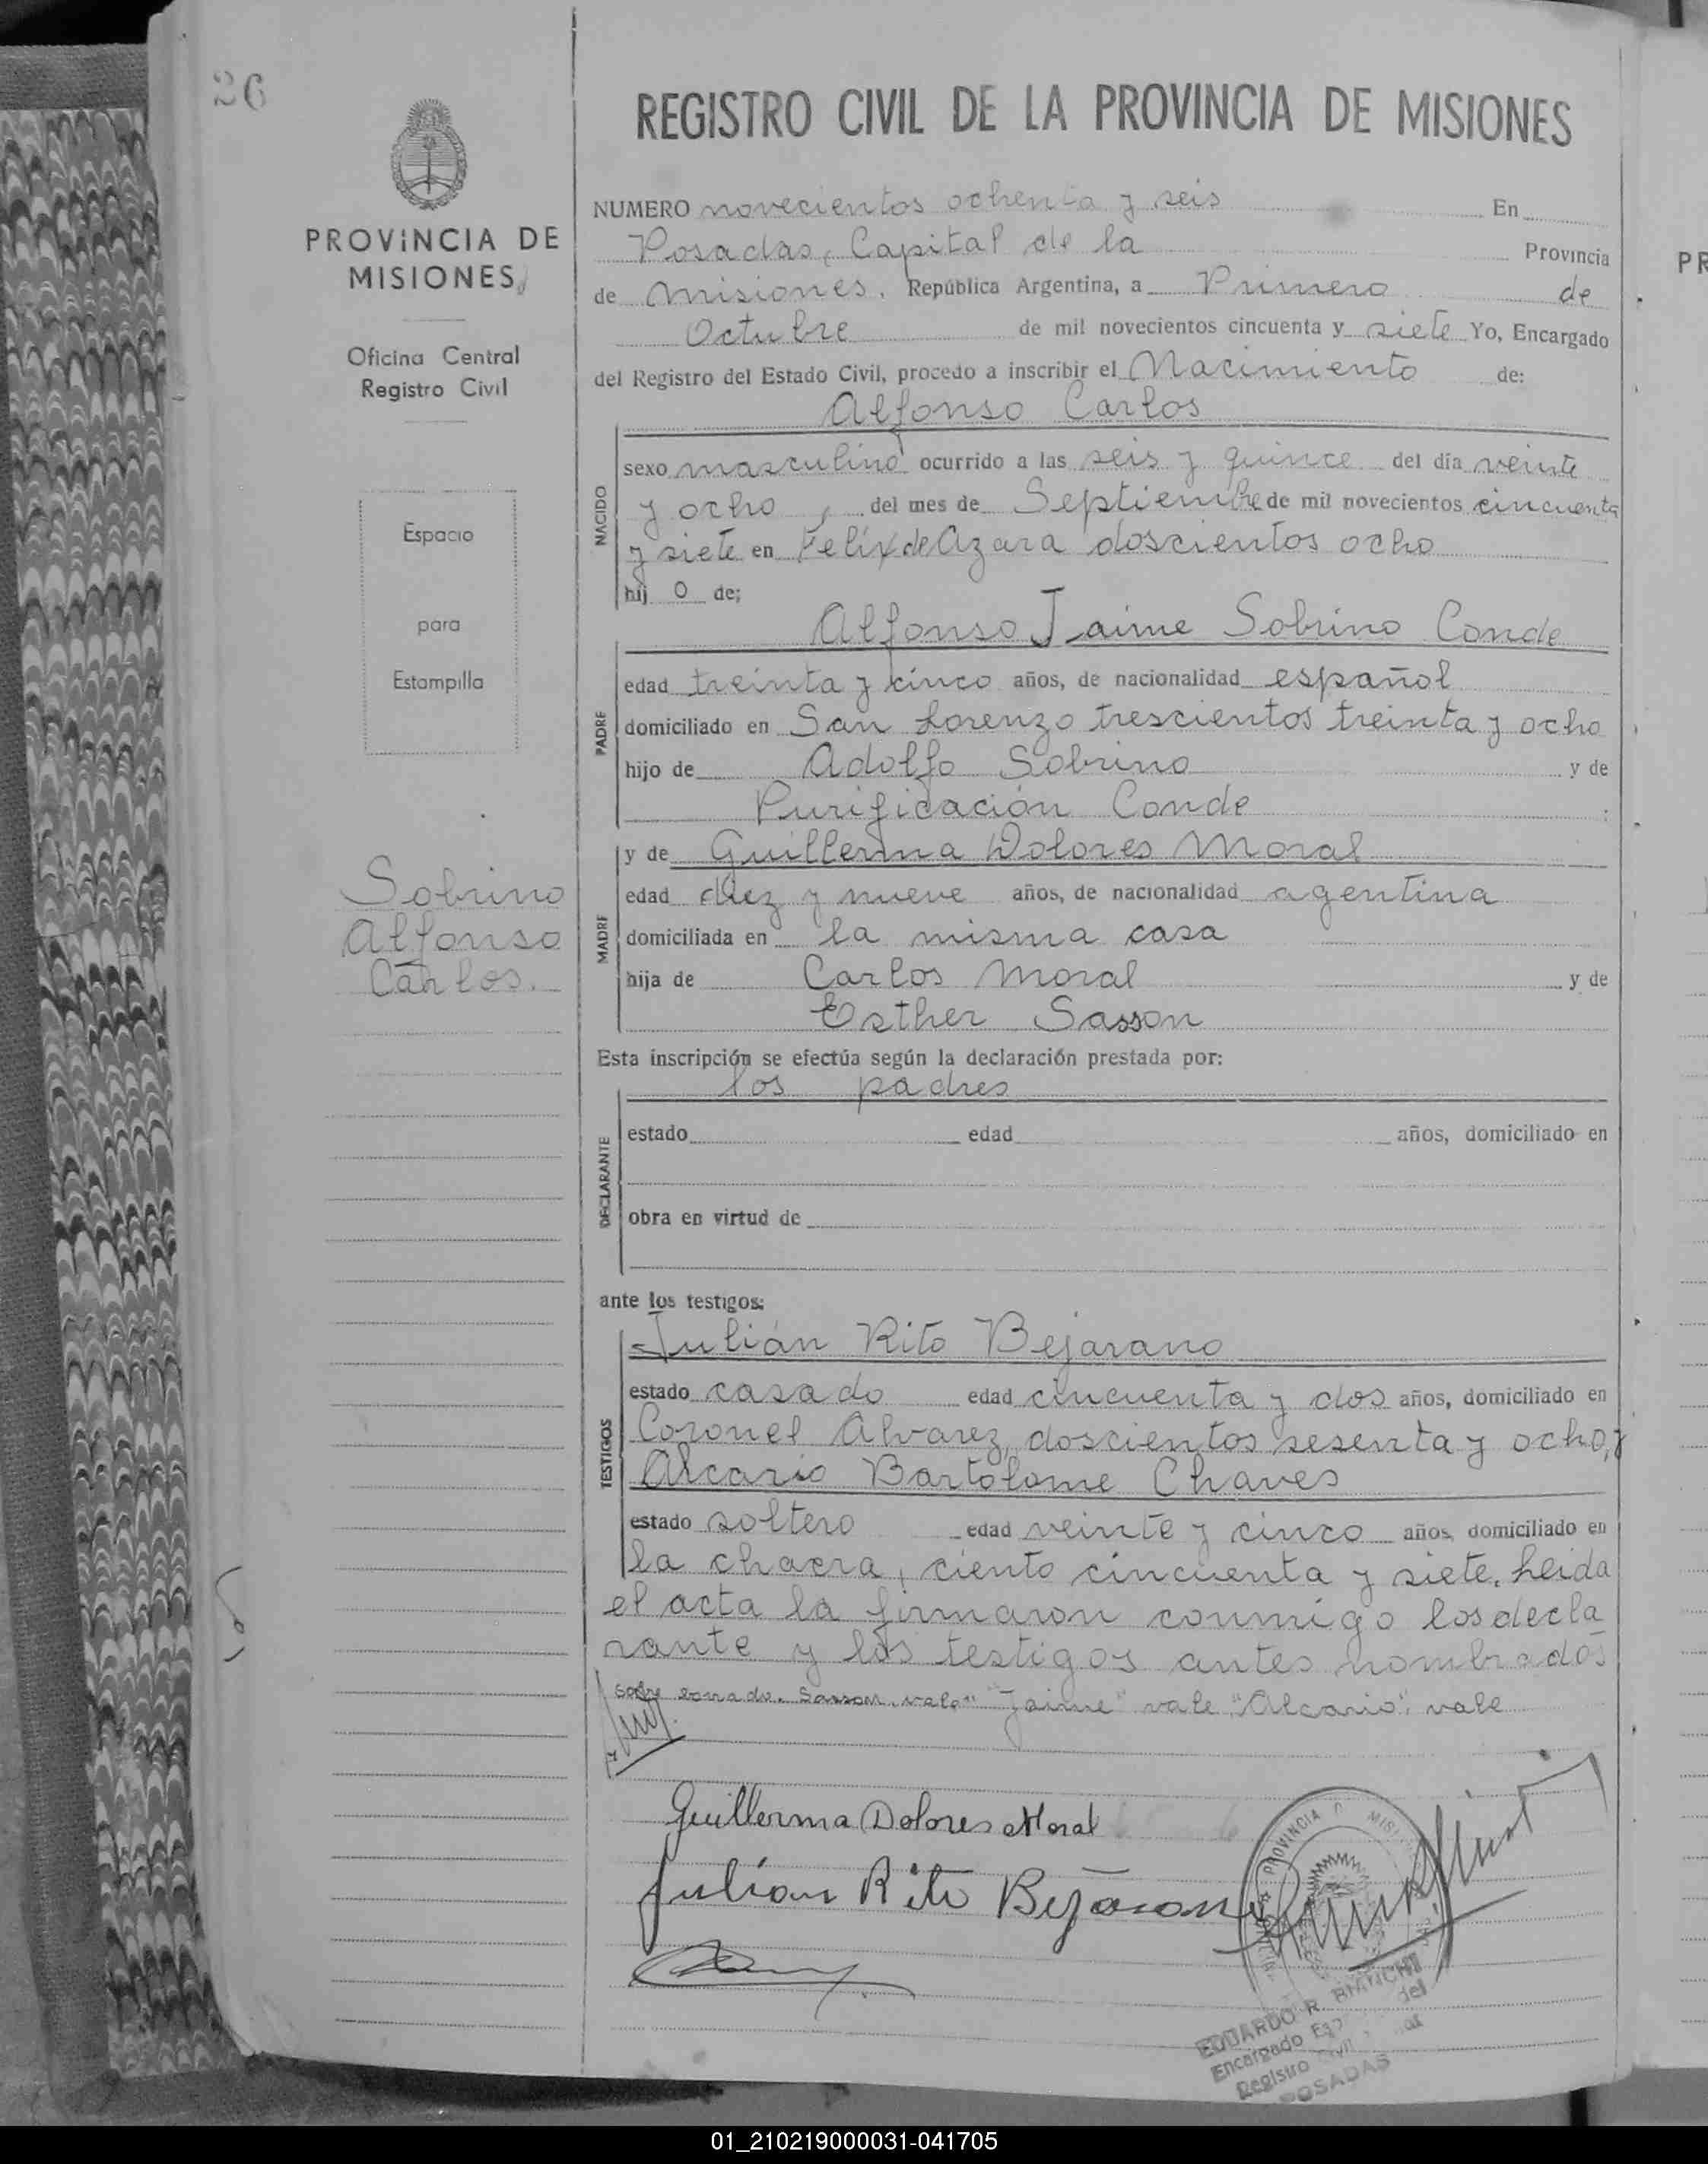 26
REGISTRO CIVIL DE LA PROVINCIA DE MISIONES
PROVINCIA DE
MISIONES
Oficina Central
Registro Civil
Espacio
para
Estampilla
Sobrino
Alfonso
Carlos.
NUMERO novecientos ochenta y seis En
Posadas, Capital de la Provincia
de Misiones, República Argentina, a Primero de
Octubre de mil novecientos cincuenta y siete Yo, Encargado
del Registro del Estado Civil, procedo a inscribir el Nacimiento de:
Alfonso Carlos
NACIDO
sexo masculino ocurrido a las seis y quince del día veinte
y ocho, del mes de Septiembre de mil novecientos cincuenta
y siete en Felix de Azara doscientos ocho
hij o de;
Alfonso Jaime Sobrino Conde
PADRE
edad treinta y cinco años, de nacionalidad español
domiciliado en San Lorenzo trescientos treinta y ocho
hijo de Adolfo Sobrino y de
Purificación Conde
y de Guillerma Dolores Moral
MADRE
edad diez y nueve años, de nacionalidad agentina
domiciliada en la misma casa
hija de Carlos Moral y de
Esther Sasson
Esta inscripción se efectúa según la declaración prestada por:
los padres
DECLARANTE
estado edad años, domiciliado en
obra en virtud de
ante los testigos:
Julián Rito Bejarano
TESTIGOS
estado casado edad cincuenta y dos años, domiciliado en
Coronel Alvarez, doscientos sesenta y ocho, y
Alcario Bartolome Chaves
estado soltero edad veinte y cinco años, domiciliado en
la chacra, ciento cincuenta y siete. Leida
el acta la firmaron conmigo los decla
rante y los testigos antes nombrados
sobre borrado. Sasson. vale "Jaime" vale. "Alcario": vale
Guillerma Dolores Moral
Julián Rito Bejarano
PROVINCIA MISI
EDUARDO R. BIANCHI
Encargado del
Registro Civil
POSADAS
PR
01_210219000031-041705